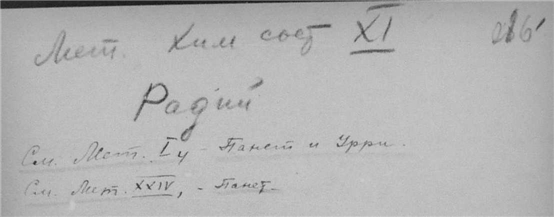 Мет. Хим сост XI 216
Радий
См. Мет. I4 - Панет и Урри.
См. Мет. XXIV, - Панет.